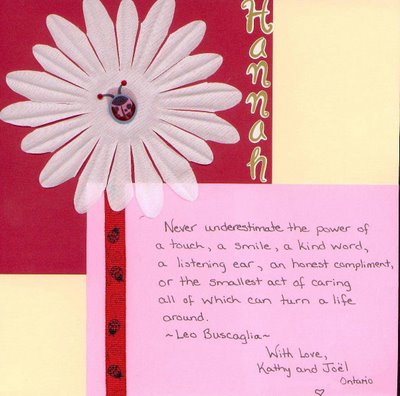 Hannah
Never underestimate the power of
a touch, a smile, a kind word,
a listening ear, an honest compliment,
or the smallest act of caring
all of which can turn a life
around.
~Leo Buscaglia~
With Love,
Kathy and Joël
Ontario